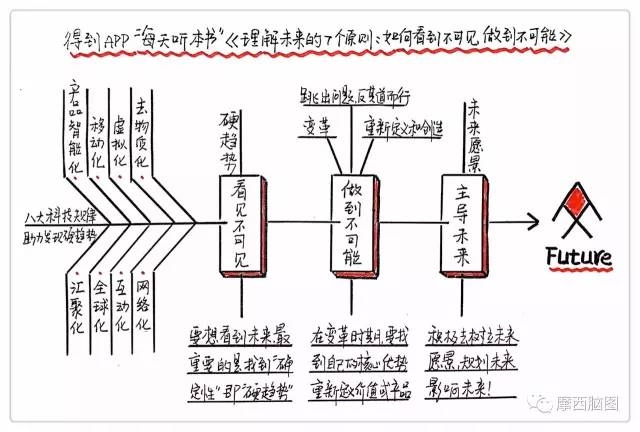 得到APP"每天听本书"《理解未来的7个原则:如何看到不可见,做到不可能》
产品智能化
移动化
虚拟化
去物质化
八大科技规律
助力发现硬趋势
汇聚化
全球化
互动化
网络化
硬趋势
看见不可见
要想看到未来,最
重要的是找到"确
定性"即"硬趋势"
跳出问题,反其道而行
变革
重新定义和创性
做到不可能
在变革时期,要找
到自己的核心优势
重新定义价值或产品
未来愿景
主导未来
积极去树立未来
愿景,规划未来
影响未来!
Future
摩西脑图